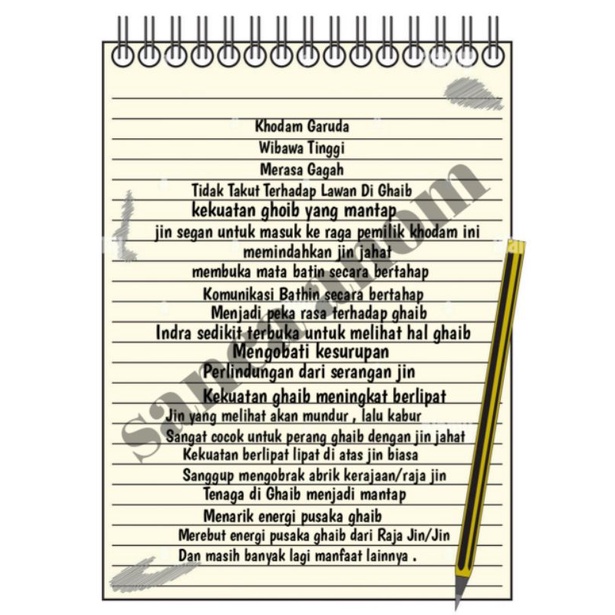 Khodam Garuda
Wibawa Tinggi
Merasa Gagah
Tidak Takut Terhadap Lawan Di Ghaib
kekuatan ghoib yang mantap
jin segan untuk masuk ke raga pemilik khodam ini
memindahkan jin jahat
membuka mata batin secara bertahap
Komunikasi Bathin secara bertahap
Menjadi peka rasa terhadap ghaib
Indra sedikit terbuka untuk melihat hal ghaib
Mengobati kesurupan
Perlindungan dari serangan jin
Kekuatan ghaib meningkat berlipat
Jin yang melihat akan mundur , lalu kabur
Sangat cocok untuk perang ghaib dengan jin jahat
Kekuatan berlipat lipat di atas jin biasa
Sanggup mengobrak abrik kerajaan/raja jin
Tenaga di Ghaib menjadi mantap
Menarik energi pusaka ghaib
Merebut energi pusaka ghaib dari Raja Jin/Jin
Dan masih banyak lagi manfaat lainnya .